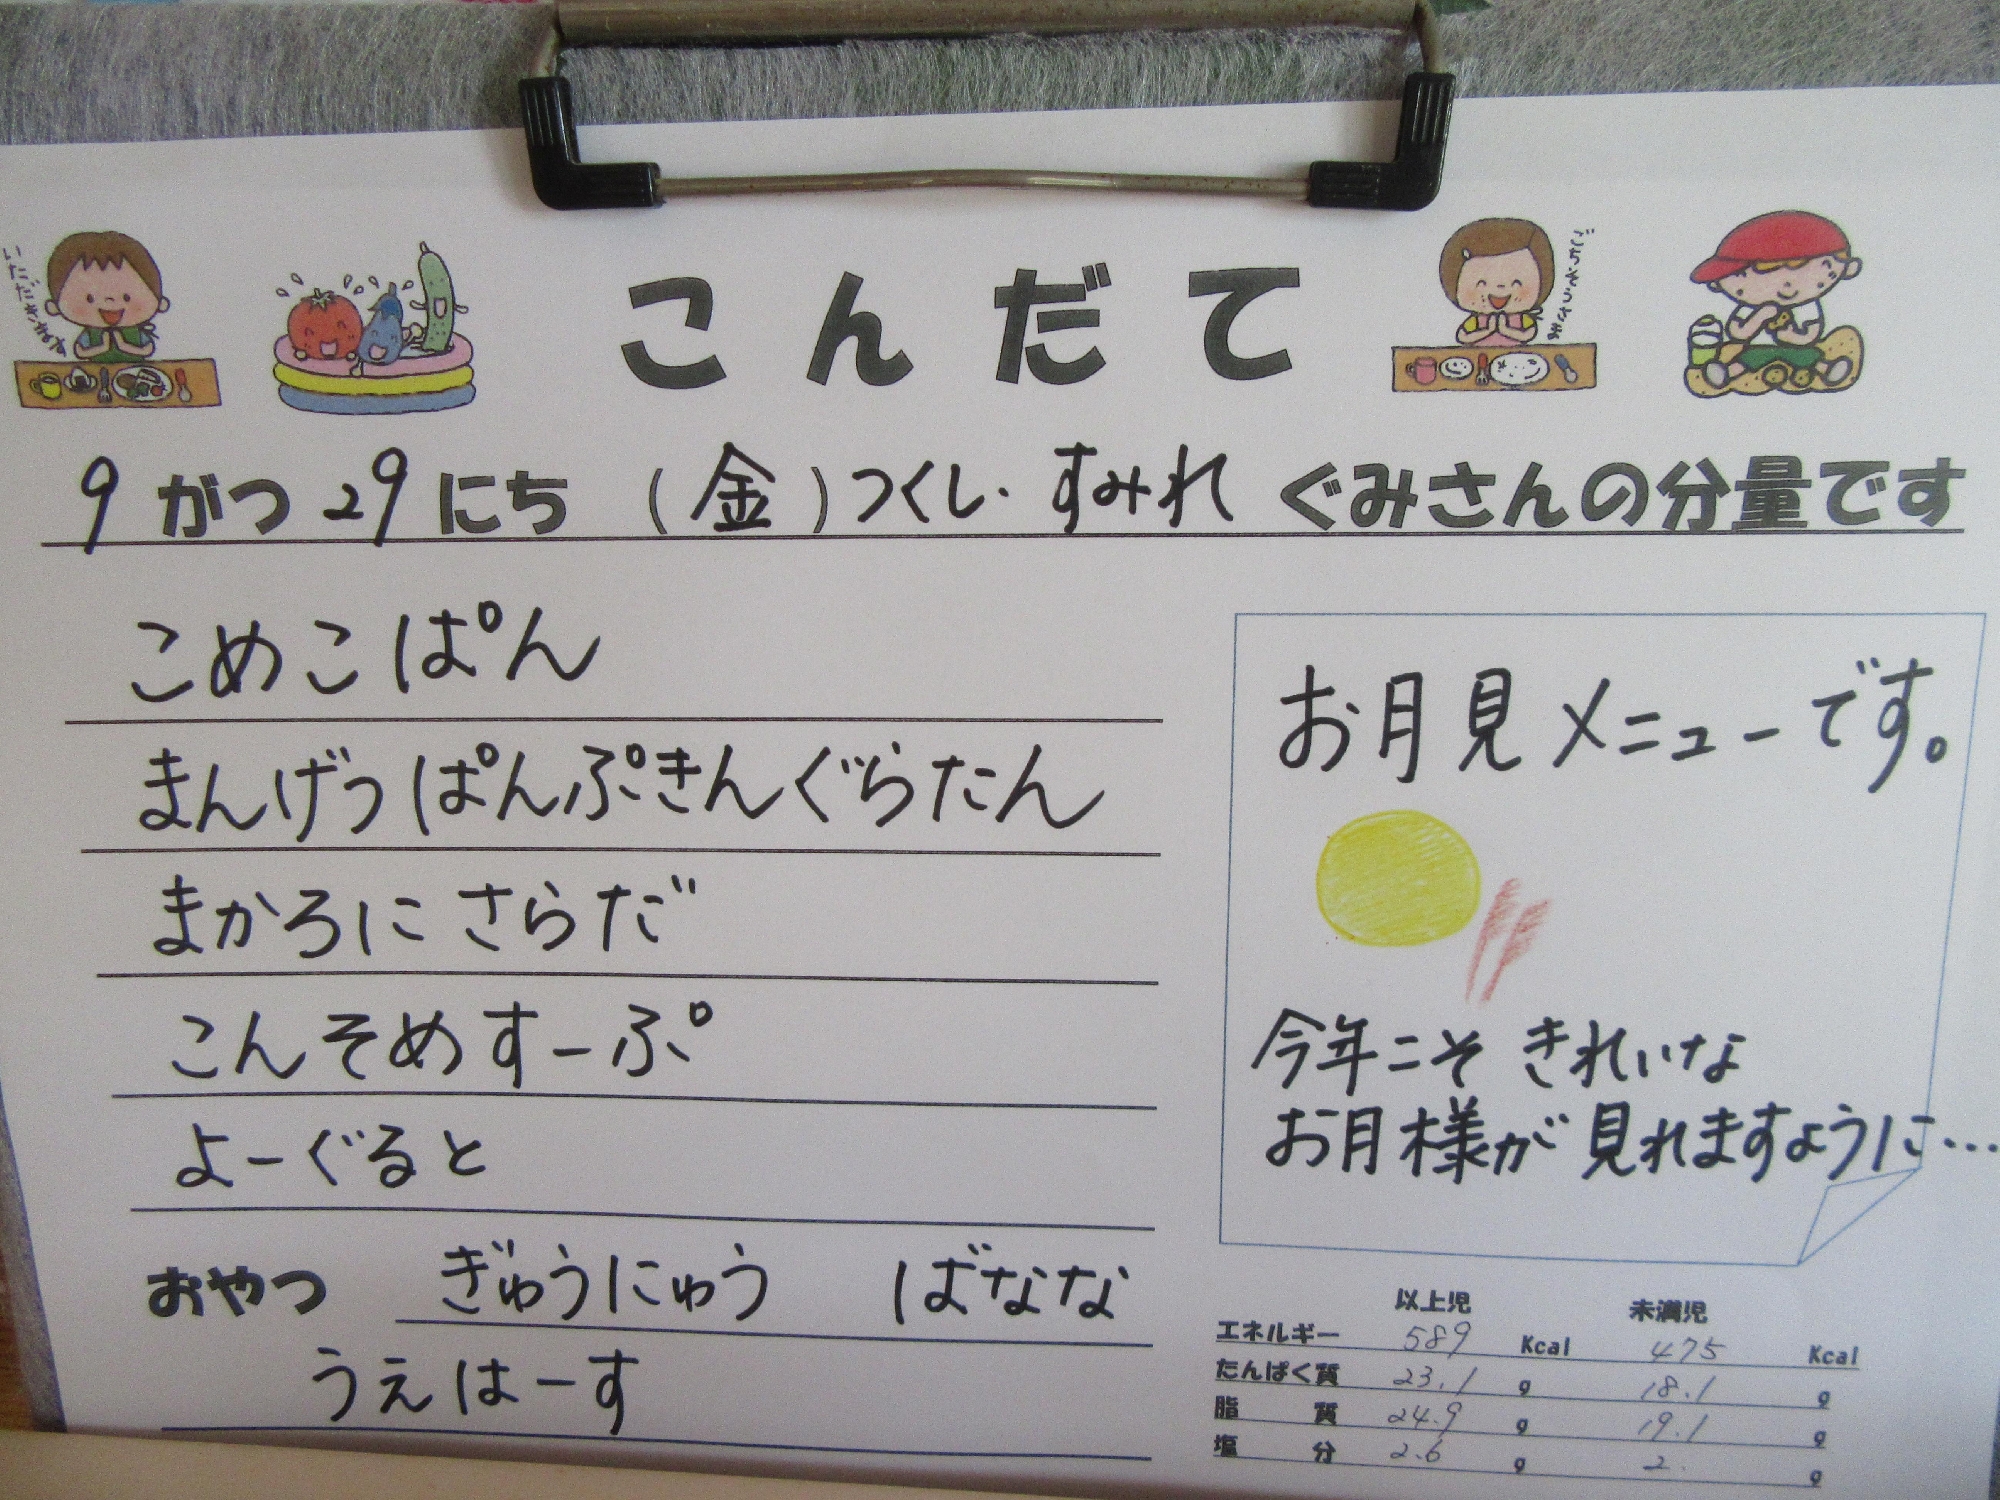 こんだて
いただきます
ごちそうさま
9がつ29にち (金) つくし・すみれ ぐみさんの分量です
こめこぱん
まんげつぱんぷきんぐらたん
まかろにさらだ
こんそめすーぷ
よーぐると
おやつ ぎゅうにゅう ばなな
うえはーす
お月見メニューです。
今年こそ きれいな
お月様が見れますように…
以上児 未満児
エネルギー 589 Kcal 475 Kcal
たんぱく質 23.1 g 18.1 g
脂質 24.9 g 19.1 g
塩分 2.6 g 2. g